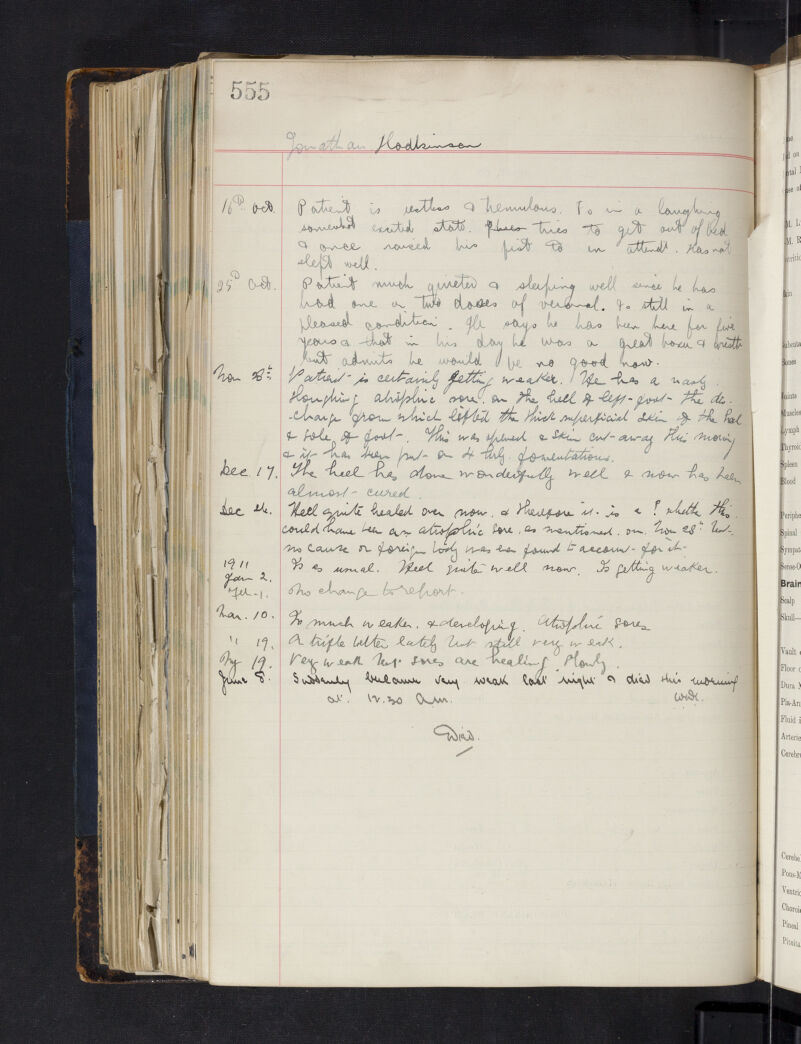 555
Jonathan Hodkinson
16th Oct. Patient is restless & tremulous. Is in a laughing
somewhat excited state. tries to get out of bed
& once raised his fist to an attendt. Has not
slept well.
25th Oct. Patient much quieter & sleeping well since he has
had one or two doses of veronal. Is still in a
pleased condition. He says he has been here for five
years & that in his day he was a great boxer &
but admits he would be no good now.
Nov 28th Patient is certainly getting weaker. He has a nasty
sloughing atrophic sore on the heel of left foot the dis-
-charge from which lifted the thick superficial skin of the heel
& sole of foot. This was opened & skin cut away this morning
& it has been put on 4 hrly. fomentations.
Dec 17. The heel has done wonderfully well & now has been
almost cured.
Dec 24. Heel quite healed over now & therefore it is a ? whether this
could have been an atrophic sore as mentioned on Nov 28th but
no cause or foreign body was ever found to account for it.
1911
Jan 2. Is as usual. Heel quite well now. Is getting weaker.
Feb. 1. No change to report.
Mar. 10. Is much weaker & developing atrophic sores
" 19. A trifle better lately but still very weak.
My 19. Very weak but sores are healing slowly.
June 8. Suddenly became very weak last night & died this morning
at 12.30 a.m.
Died.
M. L
M. R
Skin
Bones
Joints
Muscles
Lymph
Thyroid
Spleen
Blood
Spinal
Brain
Scalp
Skull
Vault
Floor
Dura
Pia-Ar
Fluid i
Arterie
Cerebr
Cerebel
Pons-M
Ventric
Choroi
Pineal
Pituita